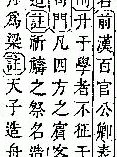 若前漢百官公卿表
而升于學者不征于
司門凡四方之賓客
造註祈禱之祭名造
舟爲梁註天子造舟